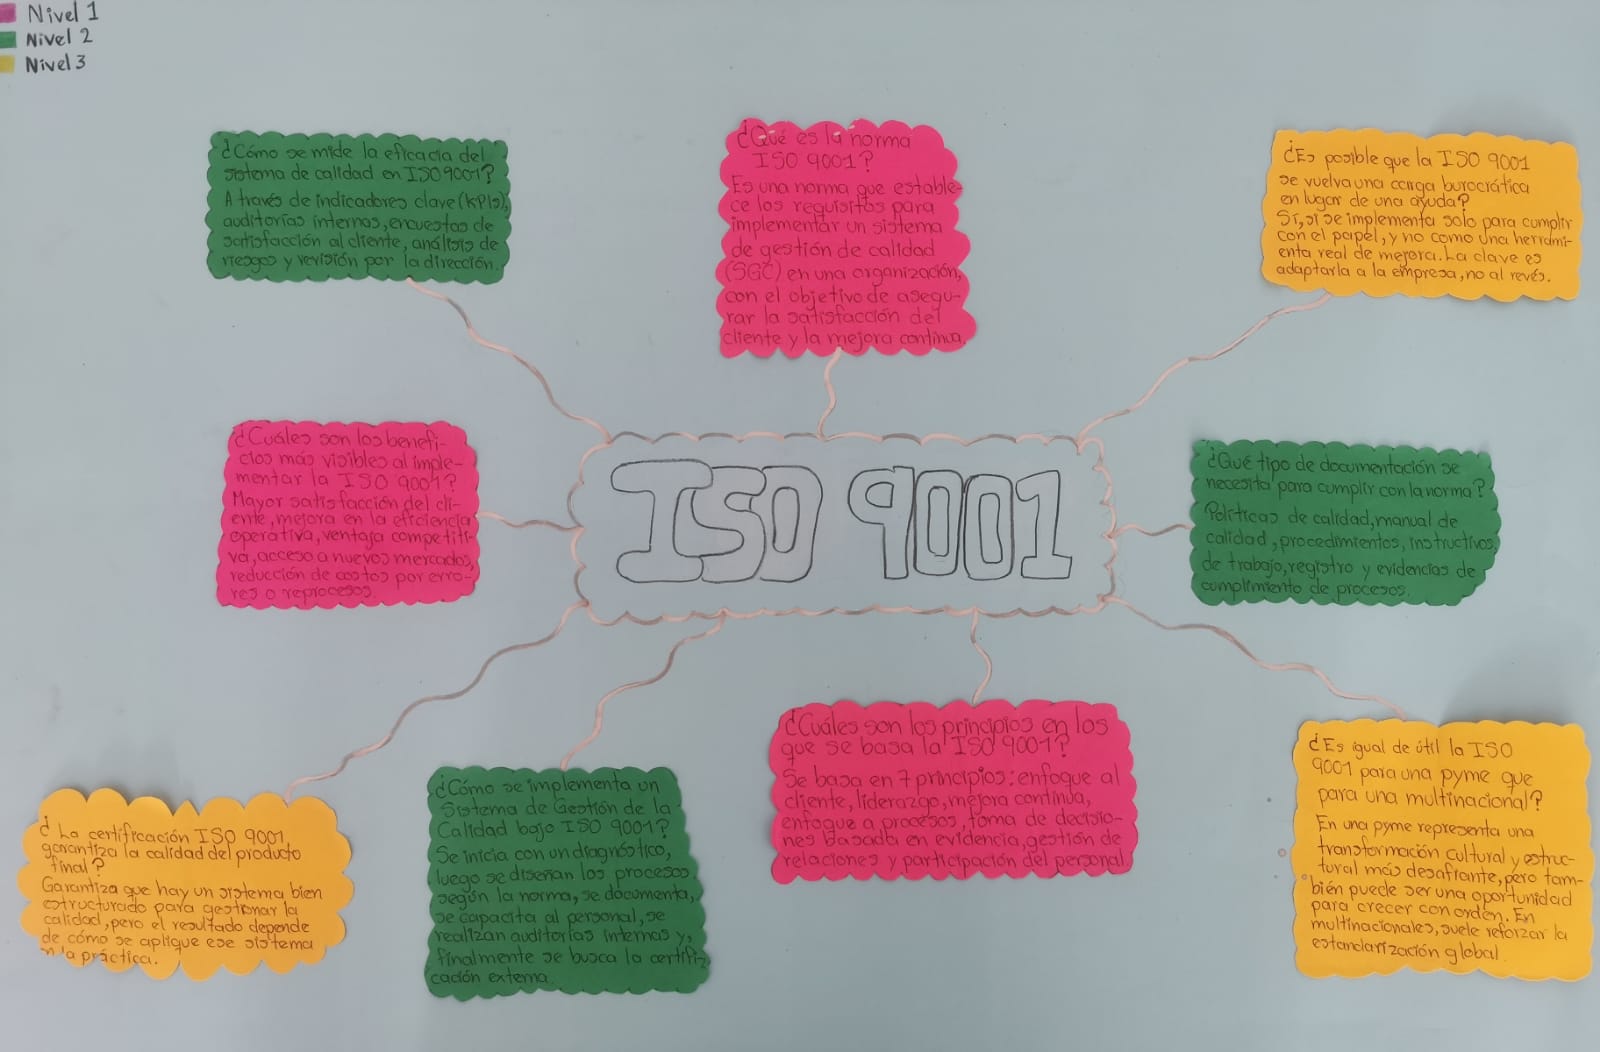 Nivel 1
Nivel 2
Nivel 3
¿Cómo se mide la eficacia del
sistema de calidad en ISO 9001?
A través de indicadores clave (KPIs),
auditorías internas, encuestas de
satisfacción al cliente, análisis de
riesgos y revisión por la dirección.
¿Qué es la norma
ISO 9001?
Es una norma que estable-
ce los requisitos para
implementar un sistema
de gestión de calidad
(SGC) en una organización,
con el objetivo de asegu-
rar la satisfacción del
cliente y la mejora continua.
¿Es posible que la ISO 9001
se vuelva una carga burocrática
en lugar de una ayuda?
Sí, si se implementa solo para cumplir
con el papel, y no como una herrami-
enta real de mejora. La clave es
adaptarla a la empresa, no al revés.
¿Cuáles son los benefi-
cios más visibles al imple-
mentar la ISO 9001?
Mayor satisfacción del cli-
ente, mejora en la eficiencia
operativa, ventaja competiti-
va, acceso a nuevos mercados,
reducción de costos por erro-
res o reprocesos.
ISO 9001
¿Qué tipo de documentación se
necesita para cumplir con la norma?
Políticas de calidad, manual de
calidad, procedimientos, instructivos
de trabajo, registro y evidencias de
cumplimiento de procesos.
¿La certificación ISO 9001
garantiza la calidad del producto
final?
Garantiza que hay un sistema bien
estructurado para gestionar la
calidad, pero el resultado depende
de cómo se aplique ese sistema
en la práctica.
¿Cómo se implementa un
Sistema de Gestión de la
Calidad bajo ISO 9001?
Se inicia con un diagnóstico,
luego se diseñan los procesos
según la norma, se documenta,
se capacita al personal, se
realizan auditorías internas y,
finalmente se busca la certifi-
cación externa.
¿Cuáles son los principios en los
que se basa la ISO 9001?
Se basa en 7 principios: enfoque al
cliente, liderazgo, mejora continua,
enfoque a procesos, toma de decisio-
nes basada en evidencia, gestión de
relaciones y participación del personal.
¿Es igual de útil la ISO
9001 para una pyme que
para una multinacional?
En una pyme representa una
transformación cultural y estruc-
tural más desafiante, pero tam-
bién puede ser una oportunidad
para crecer con orden. En
multinacionales, suele reforzar la
estandarización global.